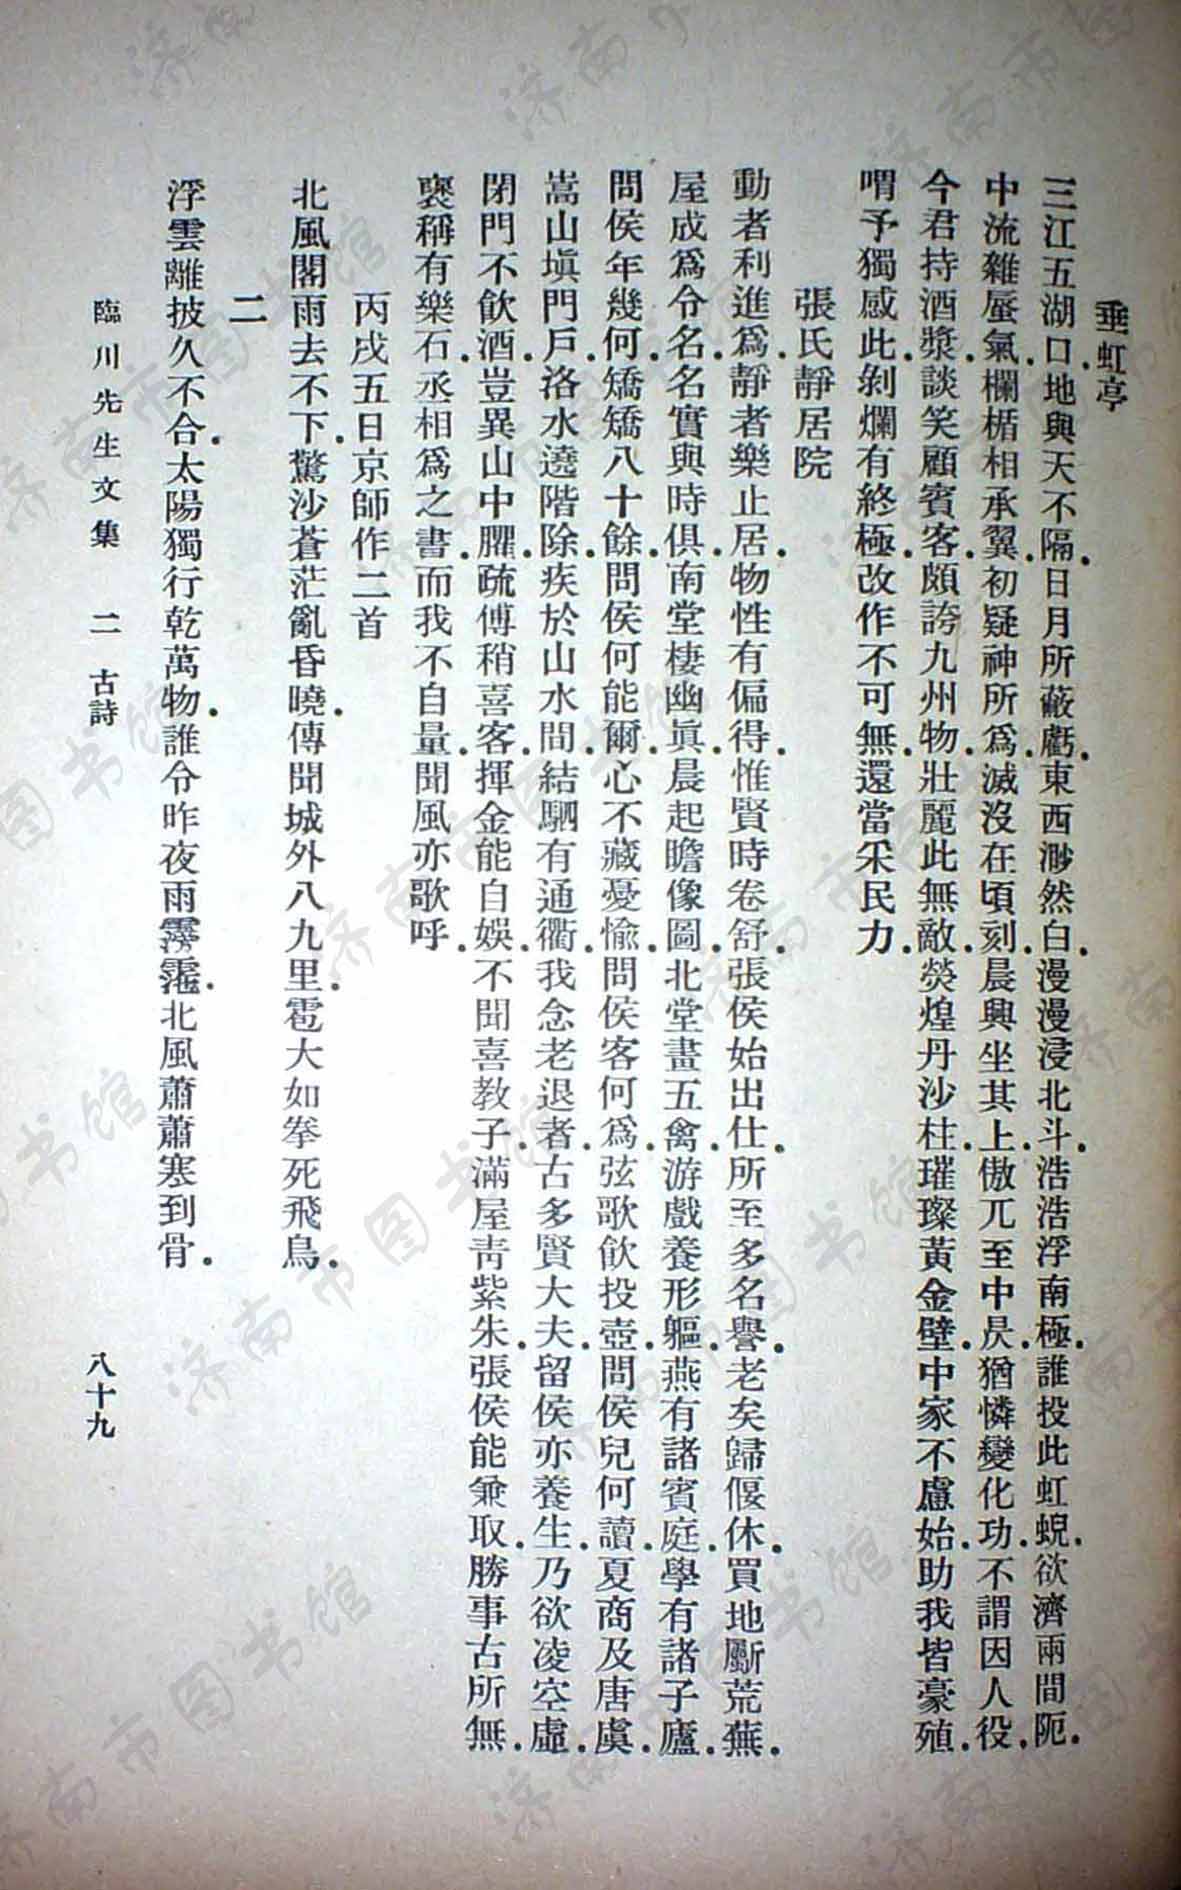 垂虹亭
三江五湖口．地與天不隔．日月所蔽虧．東西渺然白．漫漫浸北斗．浩浩浮南極．誰投此虹蜺．欲濟兩間阨．
中流雜蜃氣．欄楯相承翼．初疑神所爲．滅沒在頃刻．晨興坐其上．傲兀至中昃．猶憐變化功．不謂因人役．
今君持酒漿．談笑顧賓客．頗誇九州物．壯麗此無敵．熒煌丹沙柱．璀璨黃金壁．中家不慮始．助我皆豪殖．
喟予獨感此．剝爛有終極．改作不可無．還當采民力．
張氏靜居院
動者利進爲．靜者樂止居．物性有偏得．惟賢時卷舒．張侯始出仕．所至多名譽．老矣歸偃休．買地斸荒蕪．
屋成爲令名．名實與時俱．南堂棲幽眞．晨起瞻像圖．北堂畫五禽．游戲養形軀．燕有諸賓庭．學有諸子廬．
問侯年幾何．矯矯八十餘．問侯何能爾．心不藏憂愉．問侯客何爲．弦歌飮投壺．問侯兒何讀．夏商及唐虞．
嵩山塡門戶．洛水遶階除．疾於山水間．結駟有通衢．我念老退者．古多賢大夫．留侯亦養生．乃欲凌空虛．
閉門不飮酒．豈異山中臞．疏傅稍喜客．揮金能自娛．不聞喜教子．滿屋靑紫朱．張侯能兼取．勝事古所無．
襃稱有樂石．丞相爲之書．而我不自量．聞風亦歌呼．
丙戌五日京師作二首
北風閣雨去不下．驚沙蒼茫亂昏曉．傳聞城外八九里．雹大如拳死飛鳥．
二
浮雲離披久不合．太陽獨行乾萬物．誰令昨夜雨霶霈．北風蕭蕭寒到骨．
臨川先生文集 二 古詩 八十九
济南市图书馆